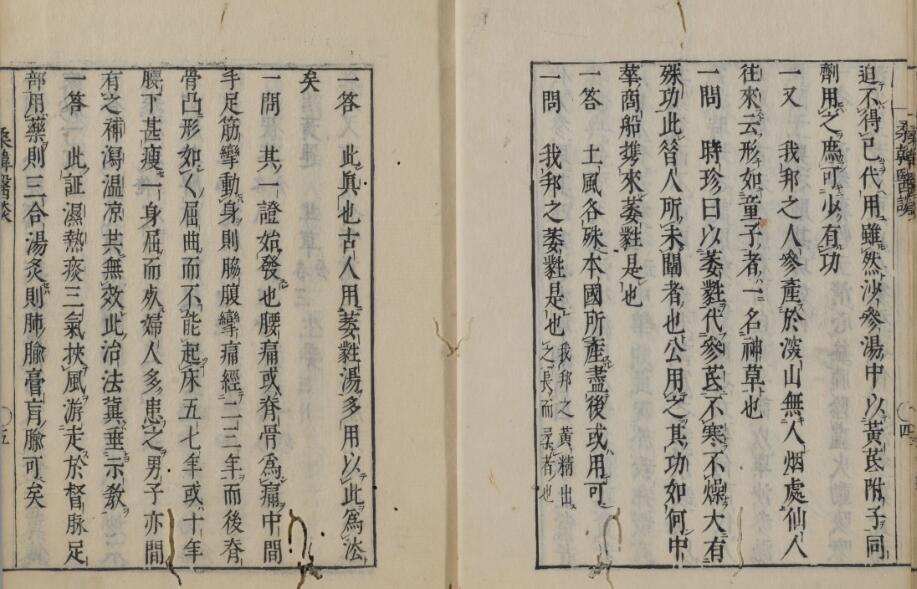 桑韓醫談 四
迫不得已代用雖然沙參湯中以黃芪附子同
劑用之庶可少有功
一又 我邦之人參產於深山無人烟處仙人
往來云形如童子者一名神草也
一問 時珍曰以萎蕤代參芪不寒不燥大有
殊功此昝人所未闡者也公用之其功如何中
華商船携來萎蕤是也
一答 土風各殊本國所產盡後或用可
一問 我邦之萎蕤是也 我邦之黃精出
之長而柔者也
一答 此眞也古人用萎蕤湯多用以此爲法
矣
一問 其一證始發也腰痛或脊骨爲痛中間
手足筋攣動身則脇腹攣痛經二三年而後脊
骨凸形如く屈曲而不能起床五七年或十年
腰下甚瘦一身屈而死婦人多患之男子亦間
有之補瀉溫凉共無效此治法冀垂示敎
一答 此証濕熱痰三氣挾風游走於督脉足
部用藥則三合湯灸則肺腧膏肓腧可矣
桑韓醫談 五